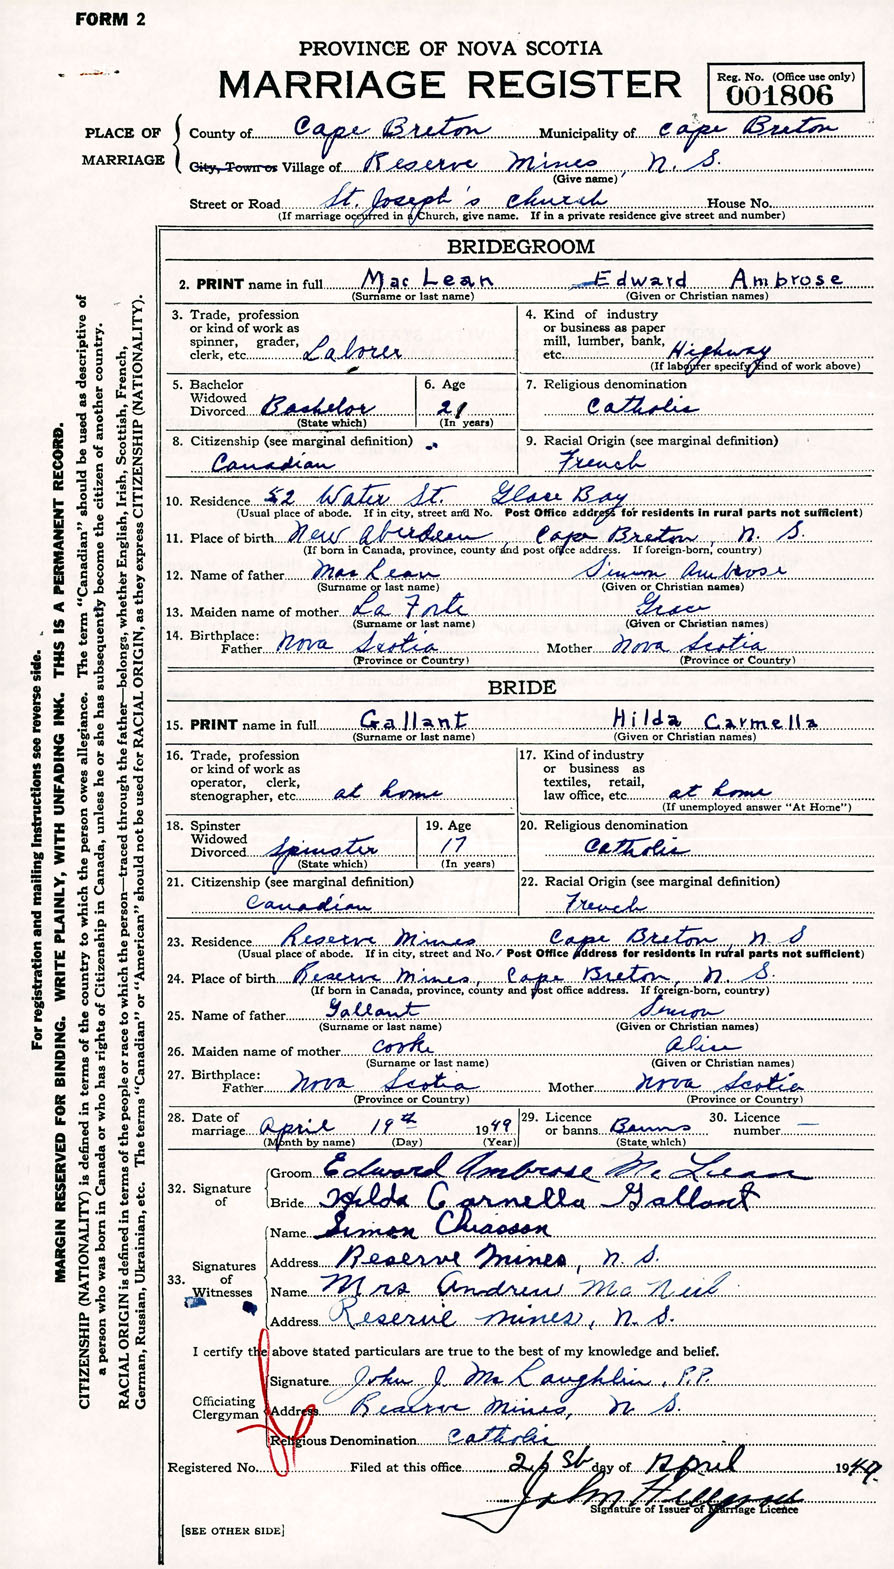 FORM 2
PROVINCE OF NOVA SCOTIA
MARRIAGE REGISTER
Reg. No. (Office use only)
001806
PLACE OF MARRIAGE
County of Cape Breton Municipality of Cape Breton
City, Town or Village of Reserve Mines, N. S.
(Give name)
Street or Road St. Joseph's Church House No.
(If marriage occurred in a Church, give name. If in a private residence give street and number)
BRIDEGROOM
2. PRINT name in full MacLean Edward Ambrose
(Surname or last name) (Given or Christian names)
3. Trade, profession or kind of work as spinner, grader, clerk, etc. Laborer
4. Kind of industry or business as paper mill, lumber, bank, etc. Highway
(If labourer specify kind of work above)
5. Bachelor Widowed Divorced Bachelor
(State which)
6. Age 21
(In years)
7. Religious denomination Catholic
8. Citizenship (see marginal definition) Canadian
9. Racial Origin (see marginal definition) French
10. Residence 52 Water St. Glace Bay
(Usual place of abode. If in city, street and No. Post Office address for residents in rural parts not sufficient)
11. Place of birth New Aberdeen, Cape Breton, N. S.
(If born in Canada, province, county and post office address. If foreign-born, country)
12. Name of father MacLean Simon Ambrose
(Surname or last name) (Given or Christian names)
13. Maiden name of mother La Forte Grace
(Surname or last name) (Given or Christian names)
14. Birthplace: Father Nova Scotia Mother Nova Scotia
(Province or Country) (Province or Country)
BRIDE
15. PRINT name in full Gallant Hilda Carmella
(Surname or last name) (Given or Christian names)
16. Trade, profession or kind of work as operator, clerk, stenographer, etc. at home
17. Kind of industry or business as textiles, retail, law office, etc. at home
(If unemployed answer "At Home")
18. Spinster Widowed Divorced Spinster
(State which)
19. Age 17
(In years)
20. Religious denomination Catholic
21. Citizenship (see marginal definition) Canadian
22. Racial Origin (see marginal definition) French
23. Residence Reserve Mines Cape Breton, N S
(Usual place of abode. If in city, street and No. Post Office address for residents in rural parts not sufficient)
24. Place of birth Reserve Mines, Cape Breton, N. S.
(If born in Canada, province, county and post office address. If foreign-born, country)
25. Name of father Gallant Simon
(Surname or last name) (Given or Christian names)
26. Maiden name of mother Cooke Alice
(Surname or last name) (Given or Christian names)
27. Birthplace: Father Nova Scotia Mother Nova Scotia
(Province or Country) (Province or Country)
28. Date of marriage April 19th 1949
(Month by name) (Day) (Year)
29. Licence or banns Banns
(State which)
30. Licence number —
32. Signature of
Groom Edward Ambrose McLean
Bride Hilda Carnella Gallant
33. Signatures of Witnesses
Name Simon Chiasson
Address Reserve Mines, N. S.
Name Mrs Andrew McNeil
Address Reserve Mines, N. S.
I certify the above stated particulars are true to the best of my knowledge and belief.
Officiating Clergyman
Signature John J. McLaughlin, P.P.
Address Reserve Mines, N S.
Religious Denomination Catholic
Registered No. Filed at this office 21st day of April 1949.
John
Signature of Issuer of Marriage Licence
[SEE OTHER SIDE]
For registration and mailing Instructions see reverse side.
MARGIN RESERVED FOR BINDING. WRITE PLAINLY, WITH UNFADING INK. THIS IS A PERMANENT RECORD.
CITIZENSHIP (NATIONALITY) is defined in terms of the country to which the person owes allegiance. The term "Canadian" should be used as descriptive of
a person who was born in Canada or who has rights of Citizenship in Canada, unless he or she has subsequently become the citizen of another country.
RACIAL ORIGIN is defined in terms of the people or race to which the person—traced through the father—belongs, whether English, Irish, Scottish, French,
German, Russian, Ukrainian, etc. The terms "Canadian" or "American" should not be used for RACIAL ORIGIN, as they express CITIZENSHIP (NATIONALITY).